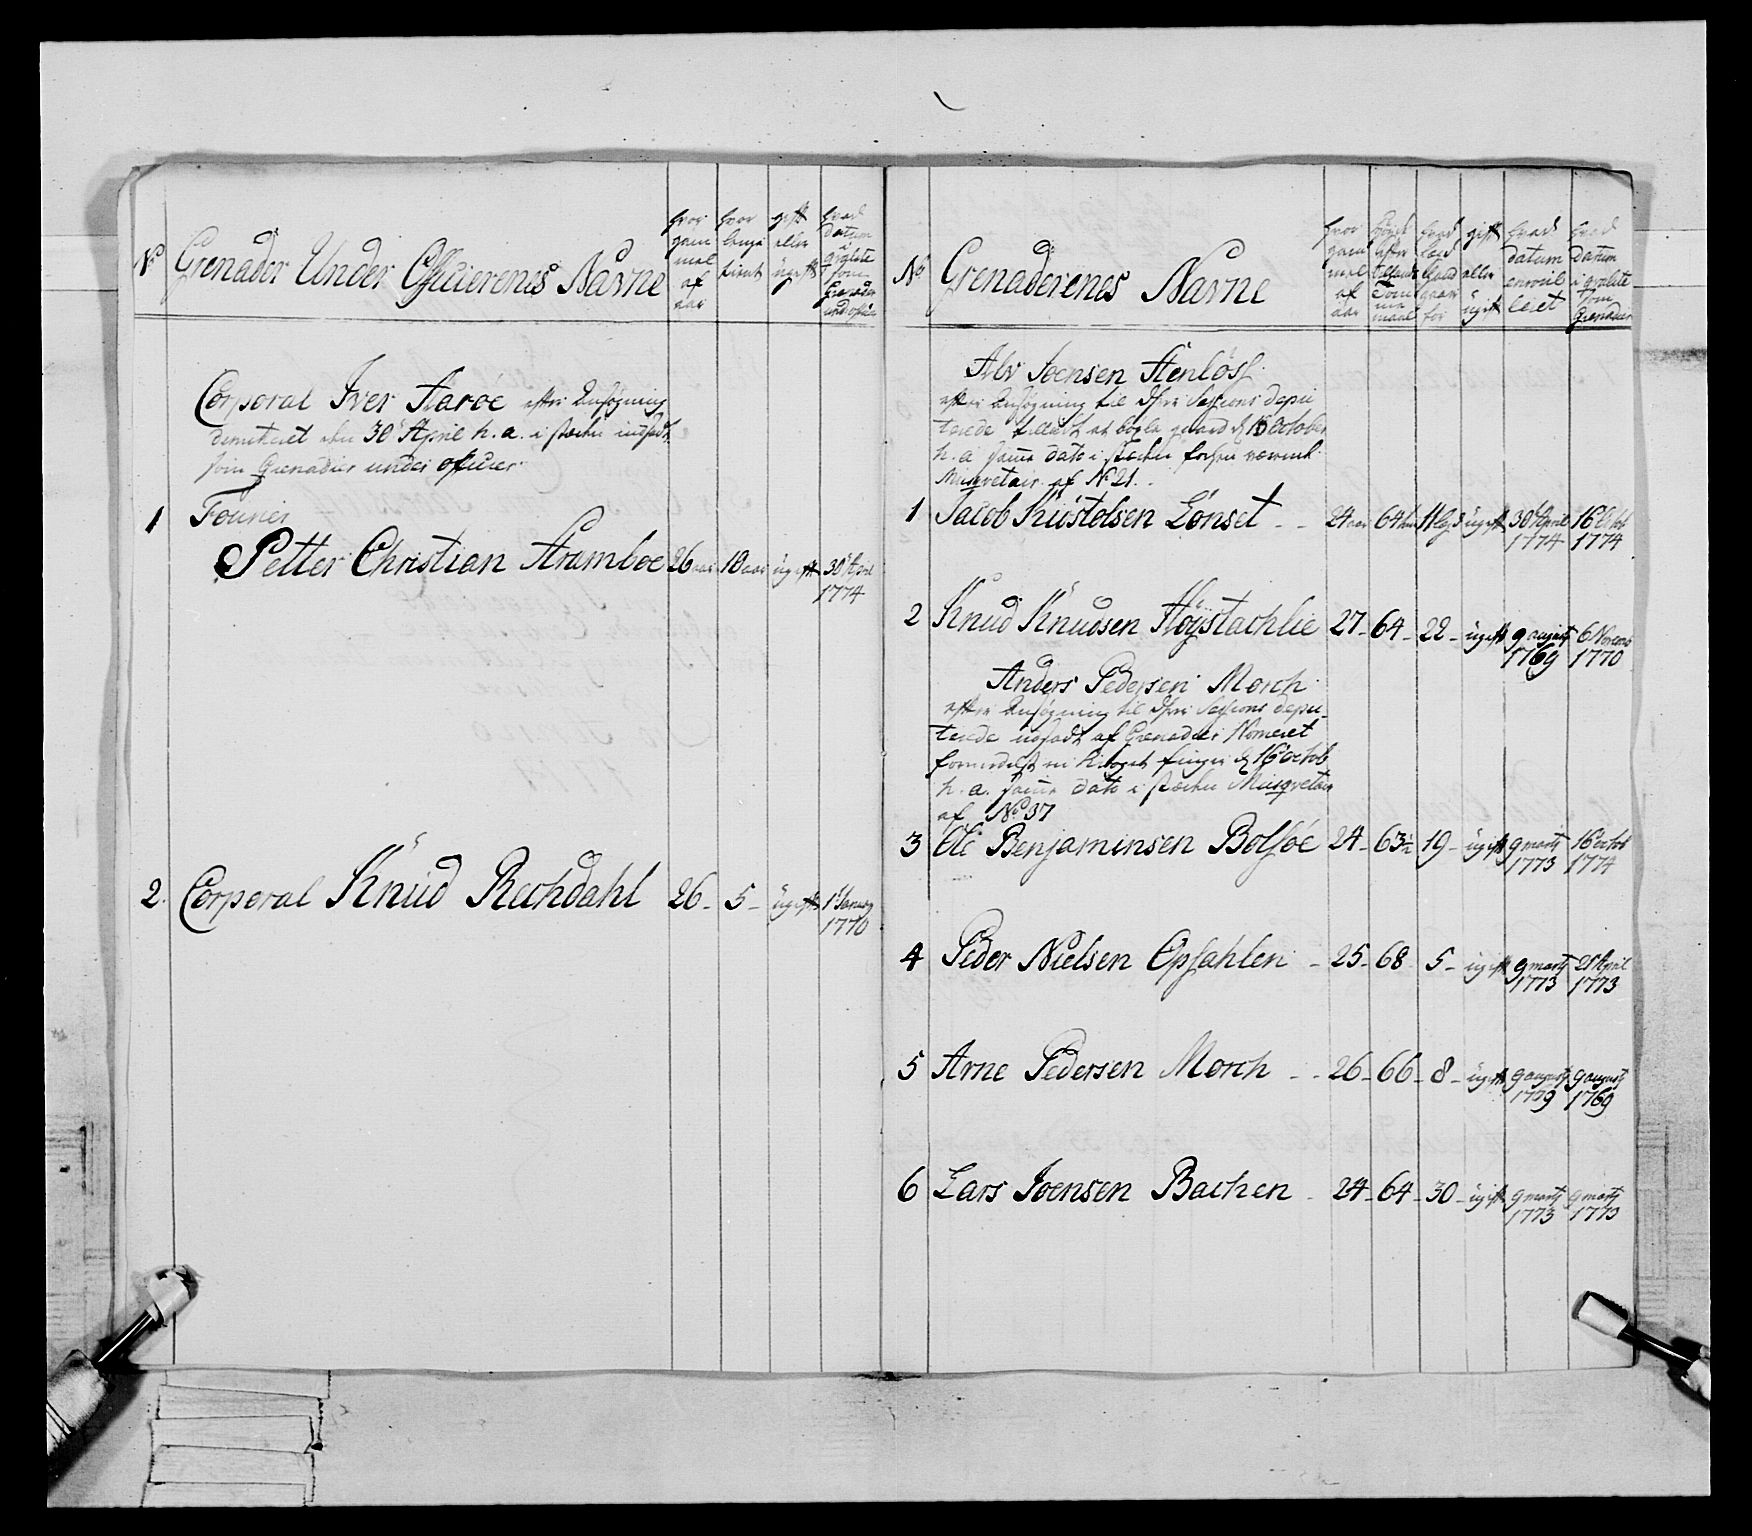 No
Grenader Under Officierenes Navne
hvor gam mel af aar
hvor lenge tient
gift eller ugift
hvad datum i qvalite som Grenader und officier
Corporal Iver Aarøe efter Ansøgning
dimiteret den 30 April h. a. i stæden indsadt
som Grenadier under officier
1 Fourier
Petter Christian Stramboe 26 aar 10 aar ugift 30 April
1774
2. Corporal Knud Rechdahl 26 5 ugift 1 January
1770
No
Grenaderenes Navne
hvor gam mel af aar
efter
hvad lægd gaar for
gift eller ugift
hvad datum enroul leret
hvad datum i qvalite som Grenadier
Alv Joensen Stenløs
efter Ansøgning til Sessions depu
terede tilladt at October
h. a samme dato i stæden
Musqvetair af No 21.
1 Jacob Kiøstolsen Lønset 24 aar 64 11 ugift 30 April 16 Octob
1774 1774
2 Knud Knudsen Høystachlie 27 64 22 ugift 9 august 6 Novemb
1769 1770
Anders Pedersen Morch
efter Ansøgning til Sessions depu
terede udsadt af Grenadier Nomeret
formedelst en finger d 16 Octob
h. a. samme dato i stæden Musqvetair
af No 37
3 Ole Benjaminsen Bolsøe 24 63½ 19 ugift 9 martj 16 Octob
1773 1774
4 Peder Nielsen Opsahlen 25 68 5 ugift 9 martj 21 April
1773 1773
5 Arne Pedersen Morch 26 66 8 ugift 9 august 9 august
1769 1769
6 Lars Joensen Bachen 24 64 30 ugift 9 martj 9 martj
1773 1773